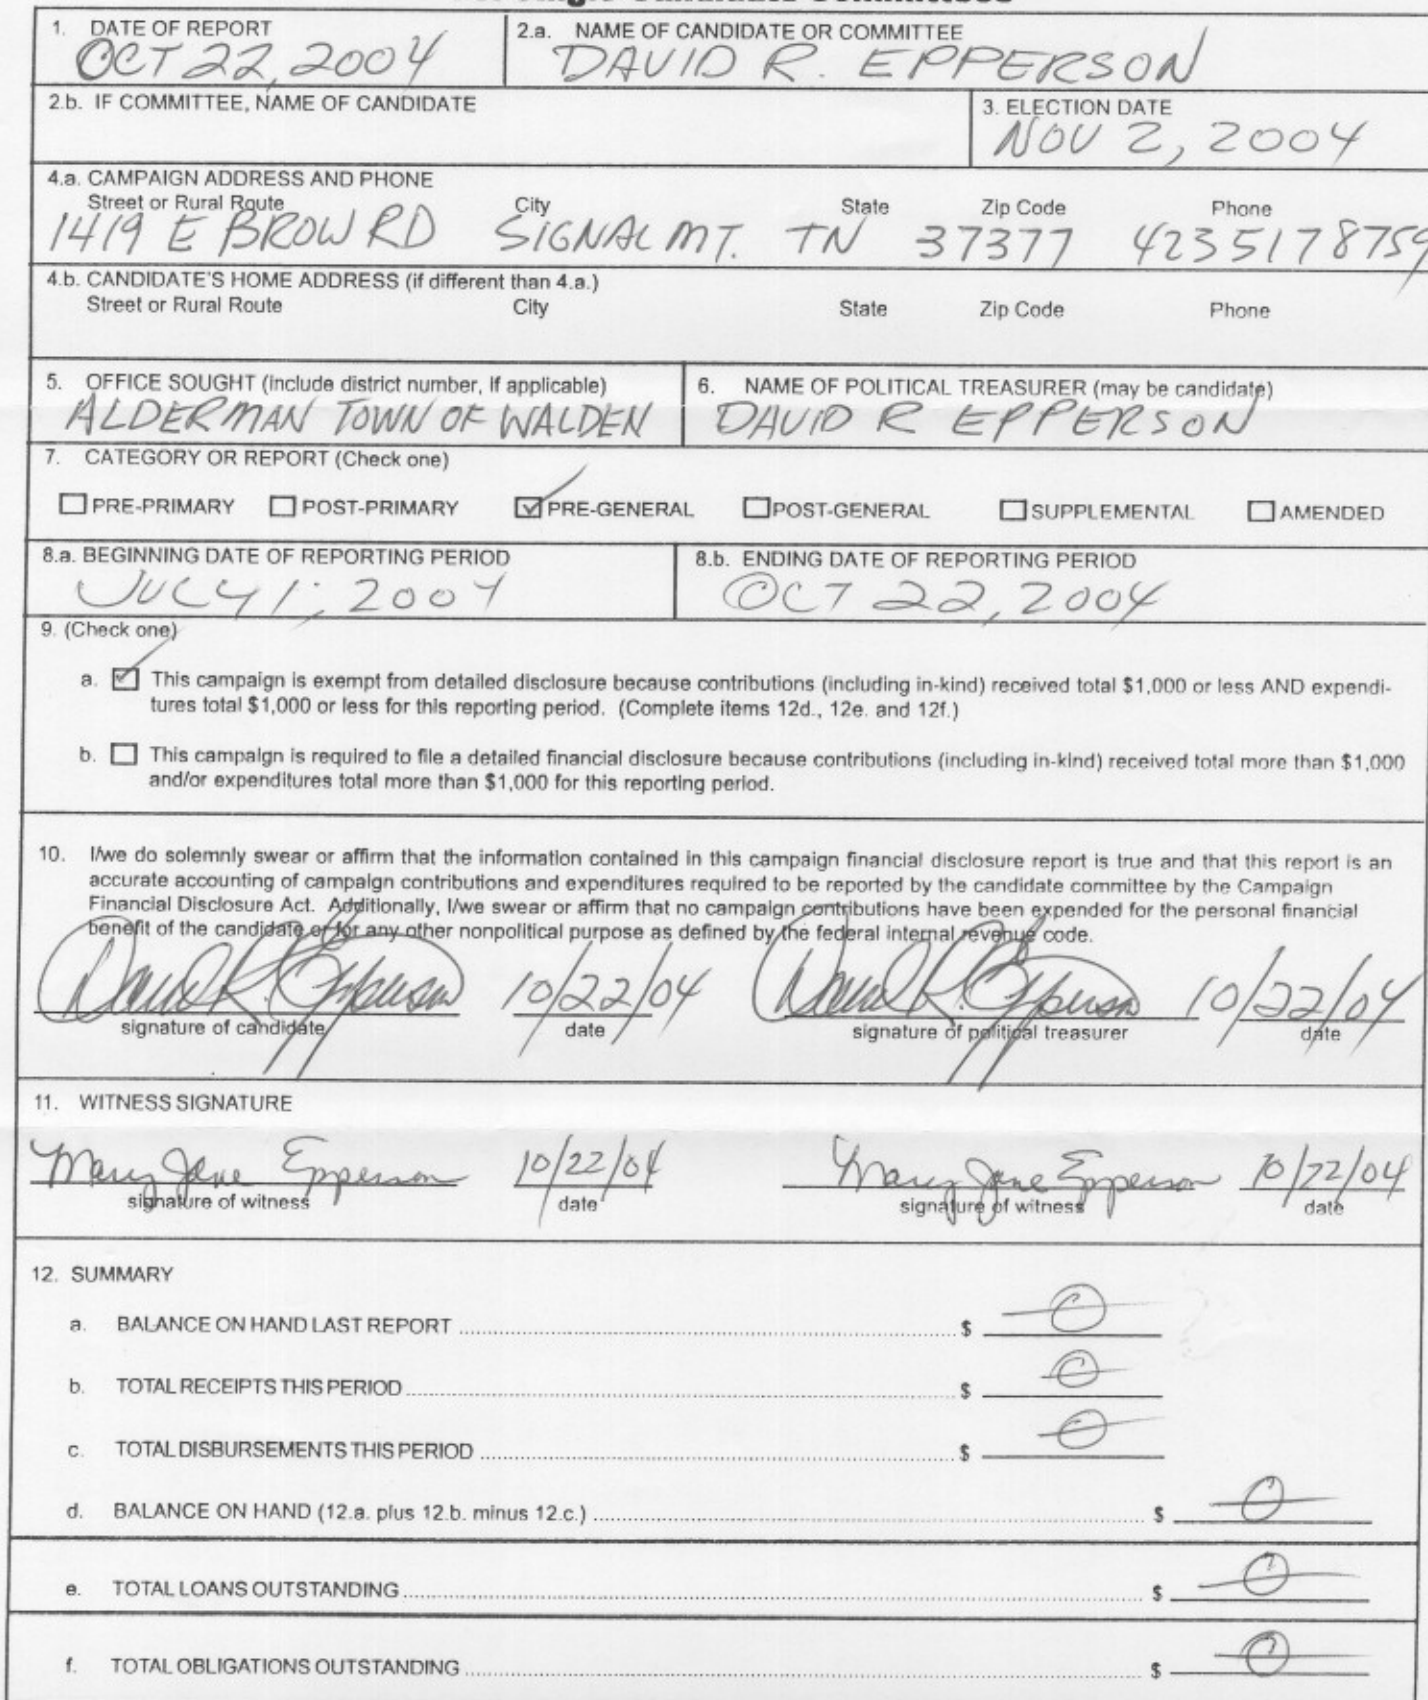 1. DATE OF REPORT
OCT 22, 2004
2.a. NAME OF CANDIDATE OR COMMITTEE
DAVID R. EPPERSON
2.b. IF COMMITTEE, NAME OF CANDIDATE
3. ELECTION DATE
NOV 2, 2004
4.a. CAMPAIGN ADDRESS AND PHONE
Street or Rural Route City State Zip Code Phone
1419 E BROW RD SIGNAL MT. TN 37377 4235178759
4.b. CANDIDATE'S HOME ADDRESS (if different than 4.a.)
Street or Rural Route City State Zip Code Phone
5. OFFICE SOUGHT (include district number, if applicable)
ALDERMAN TOWN OF WALDEN
6. NAME OF POLITICAL TREASURER (may be candidate)
DAVID R EPPERSON
7. CATEGORY OR REPORT (Check one)
PRE-PRIMARY POST-PRIMARY PRE-GENERAL POST-GENERAL SUPPLEMENTAL AMENDED
8.a. BEGINNING DATE OF REPORTING PERIOD
JULY 1, 2004
8.b. ENDING DATE OF REPORTING PERIOD
OCT 22, 2004
9. (Check one)
a. This campaign is exempt from detailed disclosure because contributions (including in-kind) received total $1,000 or less AND expendi-
tures total $1,000 or less for this reporting period. (Complete items 12d., 12e. and 12f.)
b. This campaign is required to file a detailed financial disclosure because contributions (including in-kind) received total more than $1,000
and/or expenditures total more than $1,000 for this reporting period.
10. I/we do solemnly swear or affirm that the information contained in this campaign financial disclosure report is true and that this report is an
accurate accounting of campaign contributions and expenditures required to be reported by the candidate committee by the Campaign
Financial Disclosure Act. Additionally, I/we swear or affirm that no campaign contributions have been expended for the personal financial
benefit of the candidate or for any other nonpolitical purpose as defined by the federal internal revenue code.
David R. Epperson 10/22/04 David R. Epperson 10/22/04
signature of candidate date signature of political treasurer date
11. WITNESS SIGNATURE
Mary Jane Epperson 10/22/04 Mary Jane Epperson 10/22/04
signature of witness date signature of witness date
12. SUMMARY
a. BALANCE ON HAND LAST REPORT $ 0
b. TOTAL RECEIPTS THIS PERIOD $ 0
c. TOTAL DISBURSEMENTS THIS PERIOD $ 0
d. BALANCE ON HAND (12.a. plus 12.b. minus 12.c.) $ 0
e. TOTAL LOANS OUTSTANDING $ 0
f. TOTAL OBLIGATIONS OUTSTANDING $ 0